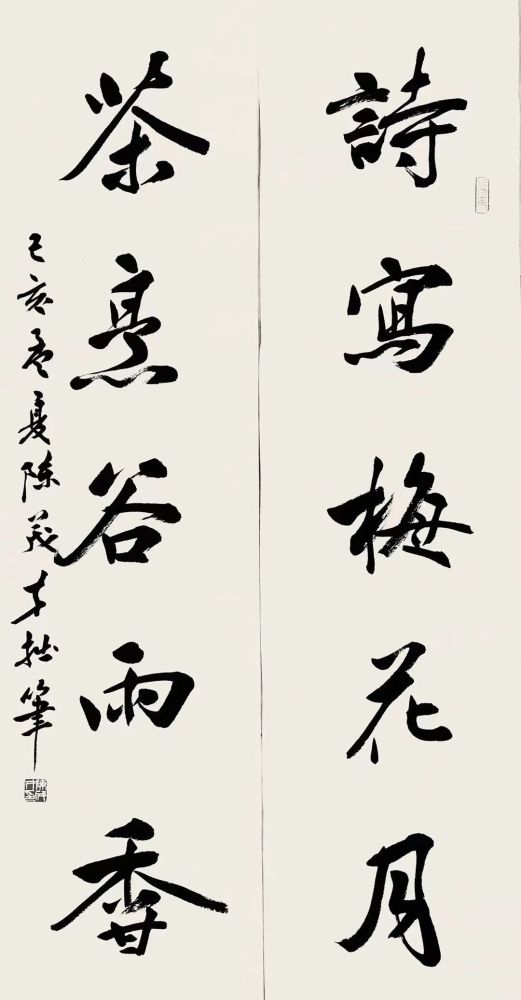 詩寫梅花月
茶烹谷雨香
己亥孟夏陈茂才拙筆